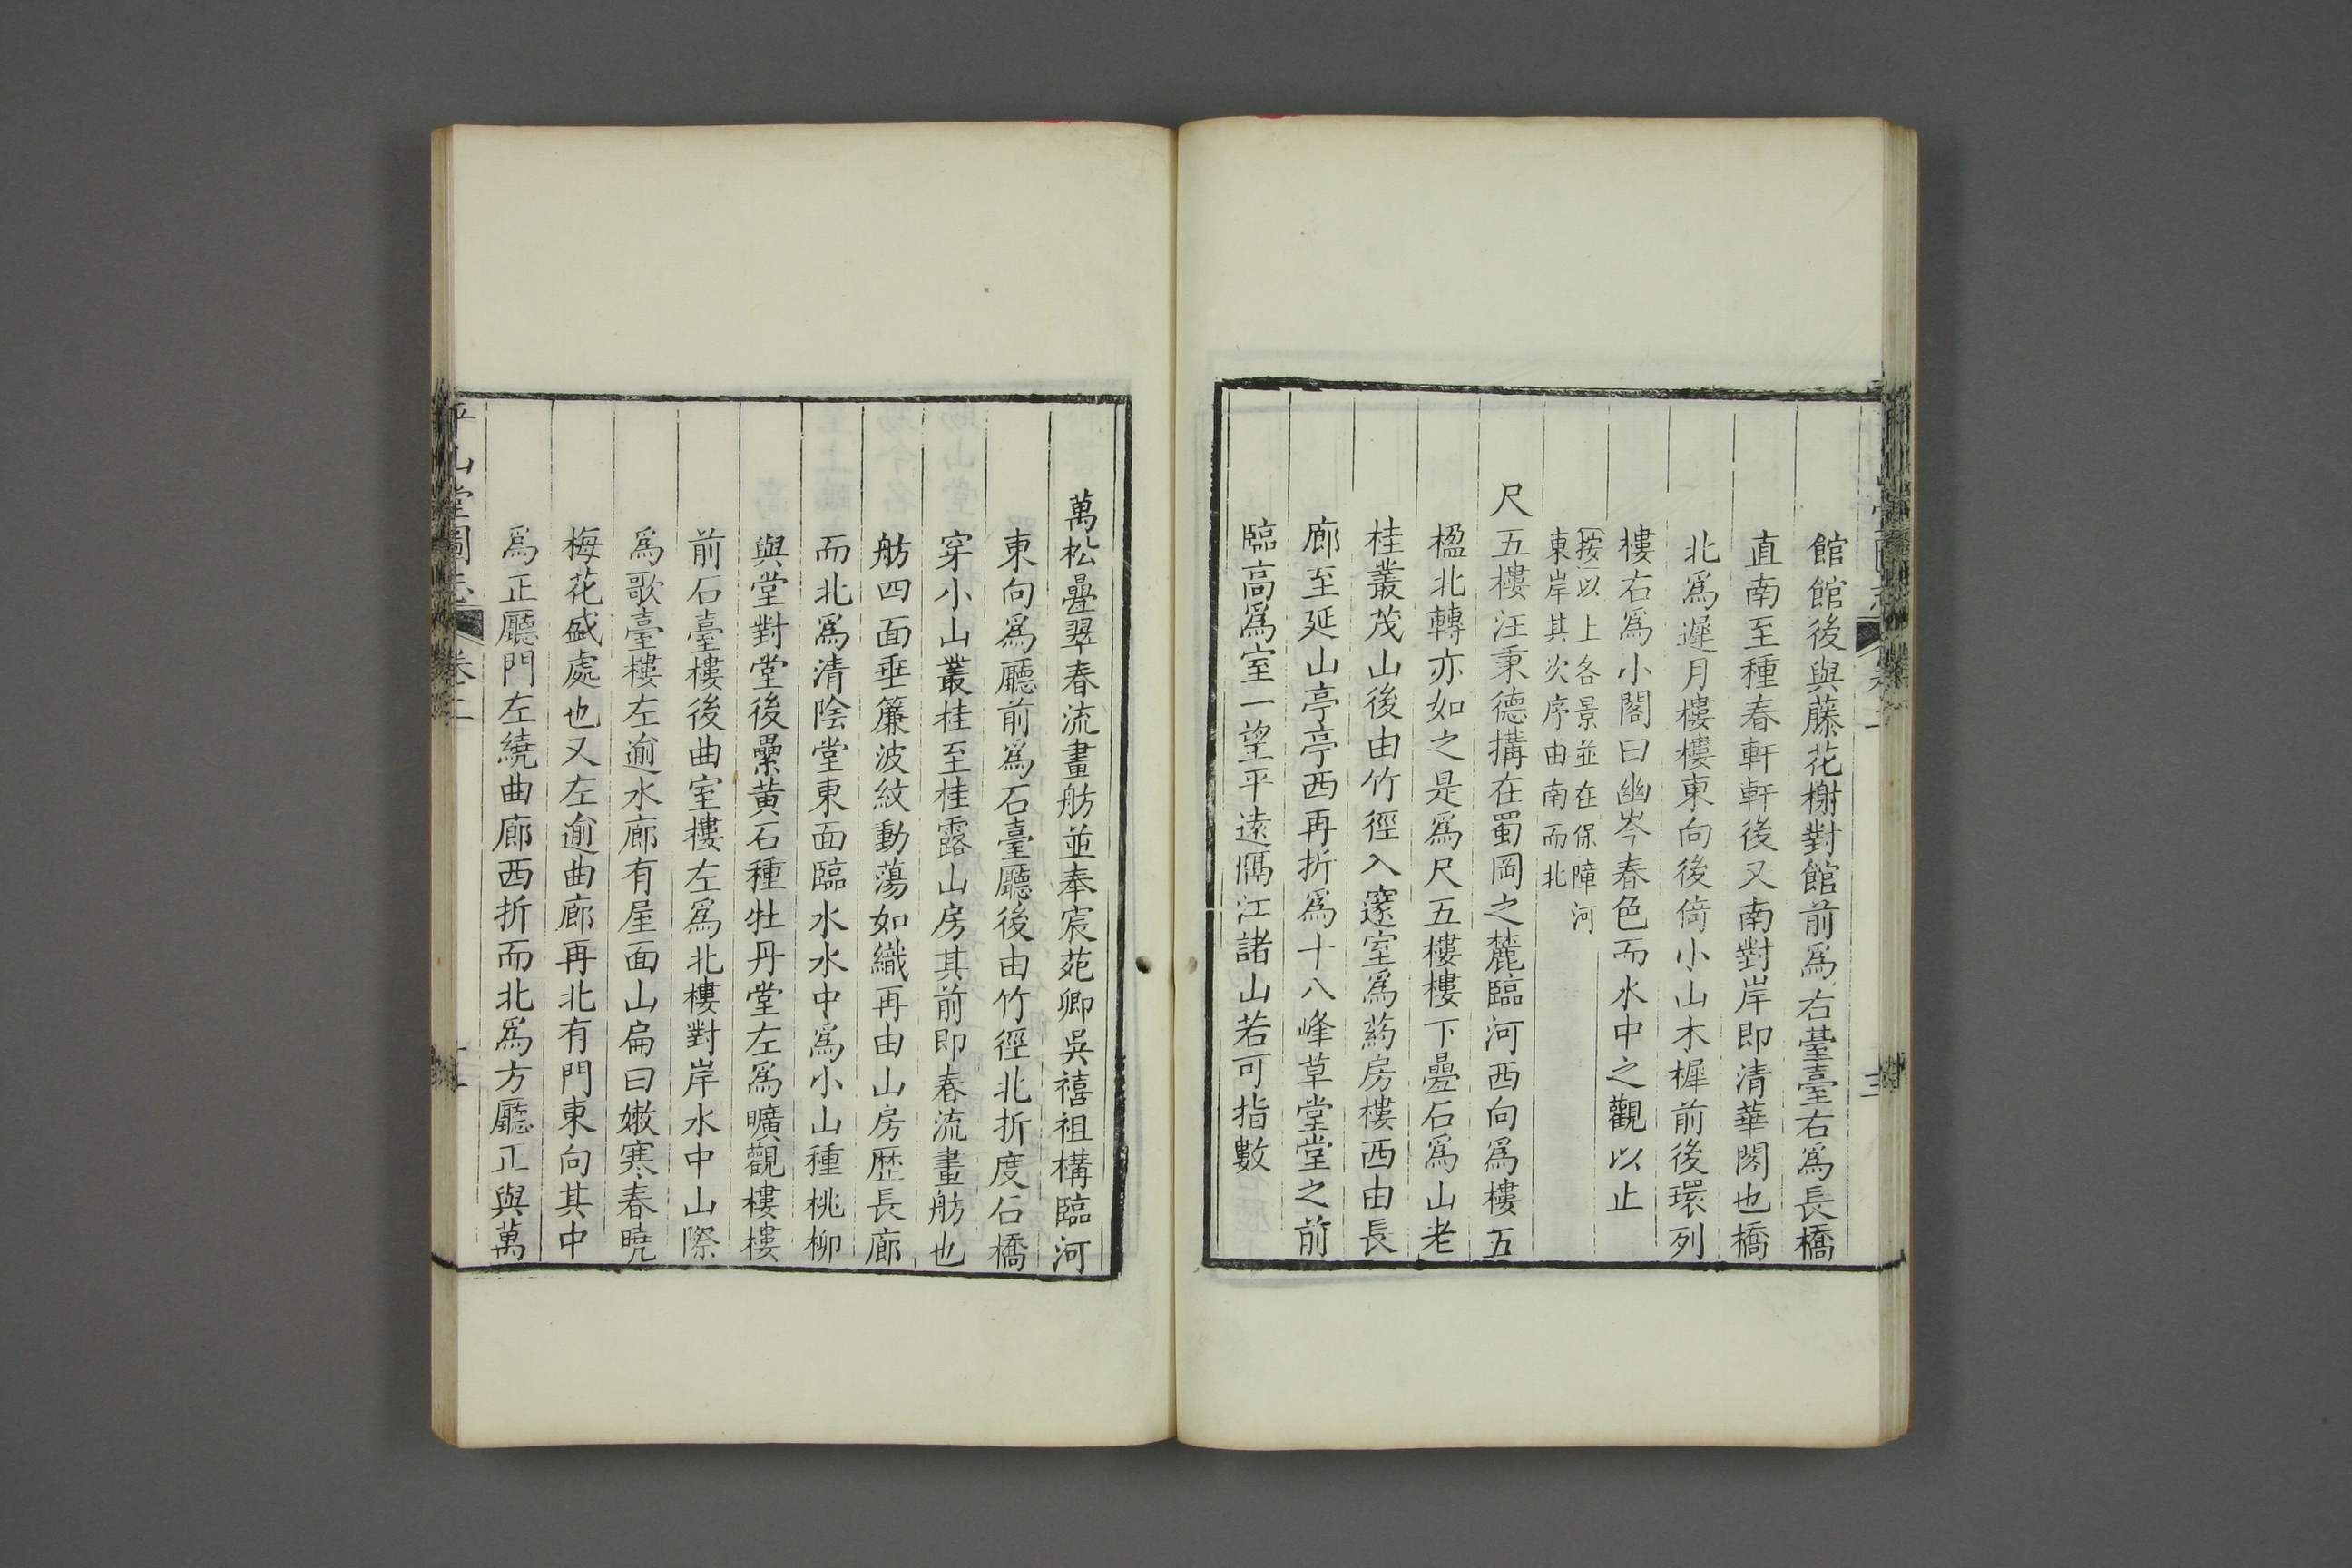 館館後與藤花榭對館前爲右臺臺右爲長橋
直南至種春軒軒後又南對岸即清華閣也橋
北爲遲月樓樓東向後倚小山木樨前後環列
樓右爲小閣曰幽岑春色而水中之觀以止
按以上各景並在保障河
東岸其次序由南而北
尺五樓汪秉德搆在蜀岡之麓臨河西向爲樓五
楹北轉亦如之是爲尺五樓樓下疊石爲山老
桂叢茂山後由竹徑入邃室爲葯房樓西由長
廊至延山亭亭西再折爲十八峰草堂堂之前
臨高爲室一望平遠隔江諸山若可指數
萬松疊翠春流畫舫並奉宸苑卿吳禧祖構臨河
東向爲廳前爲石臺廳後由竹徑北折度石橋
穿小山叢桂至桂露山房其前即春流畫舫也
舫四面垂簾波紋動蕩如織再由山房歷長廊
而北爲清陰堂東面臨水水中爲小山種桃柳
與堂對堂後壘黄石種牡丹堂左爲曠觀樓樓
前石臺樓後曲室樓左爲北樓對岸水中山際
爲歌臺樓左逾水廊有屋面山扁曰嫩寒春曉
梅花盛處也又左逾曲廊再北有門東向其中
爲正廳門左繞曲廊西折而北爲方廳正與萬
平山堂圖志
卷二